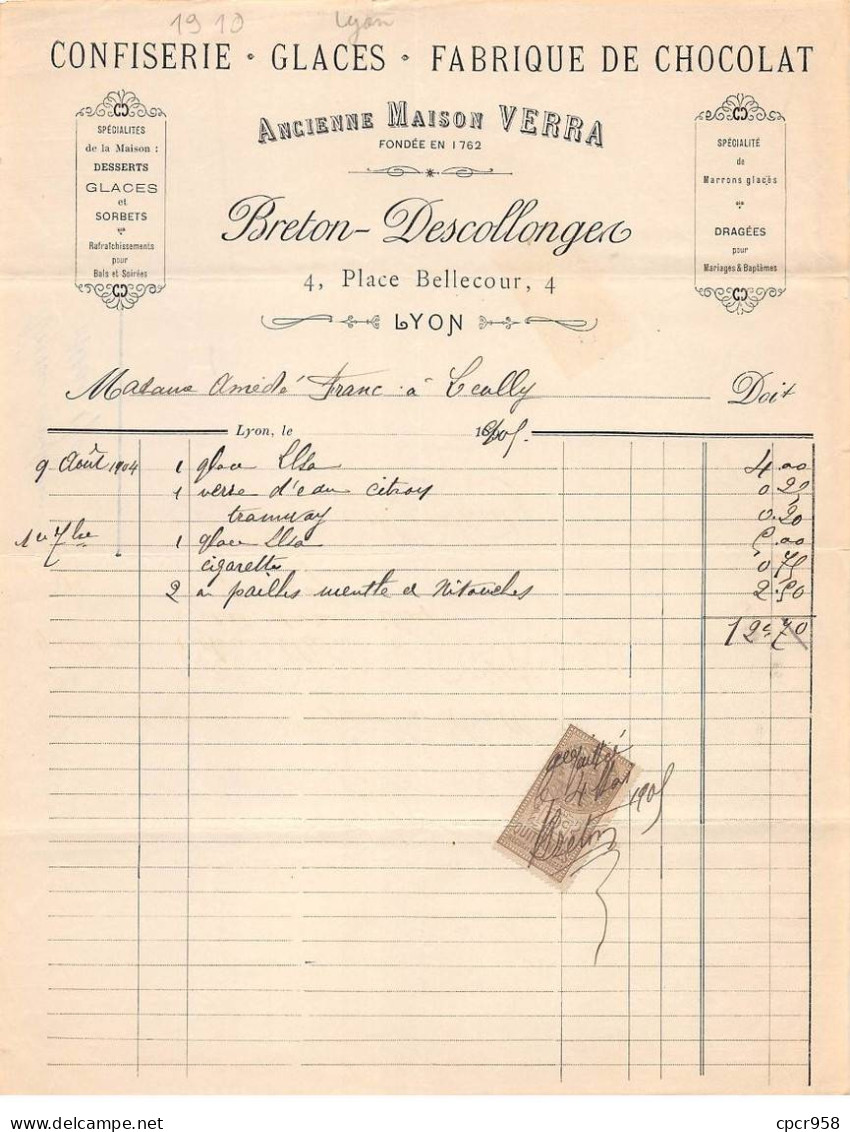 1910 Lyon
CONFISERIE · GLACES · FABRIQUE DE CHOCOLAT
ANCIENNE MAISON VERRA
FONDÉE EN 1762
SPÉCIALITES
de la Maison :
DESSERTS
GLACES
et
SORBETS
Rafraîchissements
pour
Bals et Soirées
SPÉCIALITÉ
de
Marrons glacès
DRAGÉES
pour
Mariages & Baptêmes
Breton-Descollonges
4, Place Bellecour, 4
LYON
Madame Amédé Franc à Ecully Doit
Lyon, le 1905
9 Août 1904 1 glace 4.00
1 verre d'eau citron 0 25
tramway 0.20
1er 7bre 1 glace 5.00
cigarette 0 75
2 pailles menthe et Nitouches 2.50
12 70
acquitté
1905
Breton
cpcr958